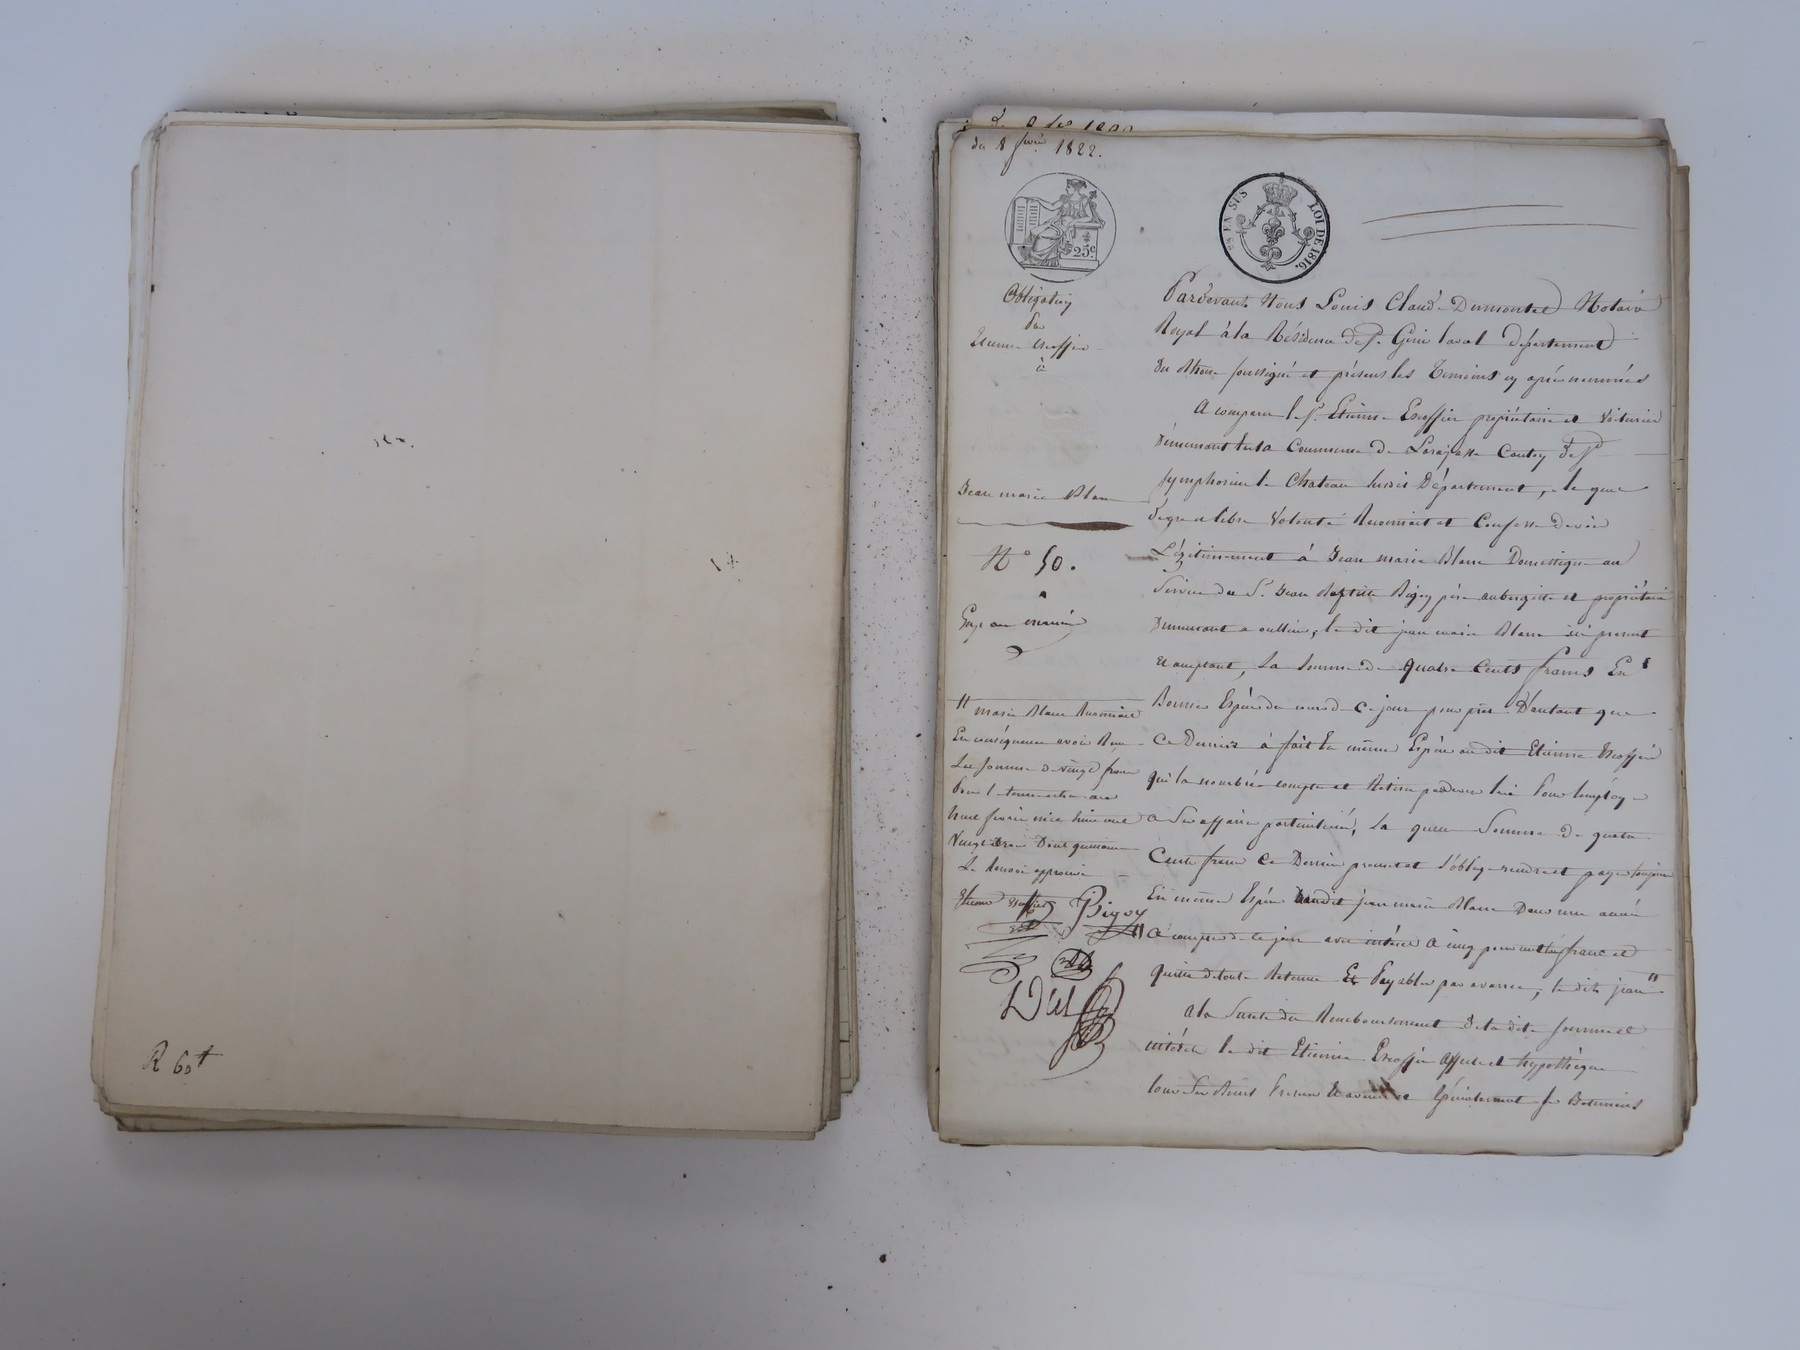 R 60
du 8 fvrier 1822.
25c
EN SUS
LOI DE 1816.
Obligation
Par
Etienne Escoffier
à
Jean marie Blanc
N° 50.
Pardevant Nous Louis Claude Dumontel Notaire
Royal à la Résidence de St. Genis laval département
du Rhone soussigné et présens les Temoins cy après nommés
A comparu le Sr. Etienne Escoffier propriétaire et Voiturier
Demeurant en la Commune de Larajasse Canton de St
symphorien le Chateau susdit Département, le quel
de gré et libre Volonté Reconnait et Confesse devoir
Légitimement à Jean marie Blanc Domestique au
Service du Sr. Jean Baptiste Pigoy père aubergiste et propriétaire
Demeurant a oullins, le dit jean marie Blanc ici present
et acceptant, La somme de quatre Cents francs En
Bonnes Espèces du cours de Ce jour pour prêt D'autant que
Ce Dernier à fait En même Espèce au dit Etienne Escoffier
qui la nombrée comptée et Retirée pardevers lui Pour l'employer
a Ses affaires particulières, La quelle Somme de quatre
Cents francs Ce Dernier promet et s'oblige rendre et payer toujours
En même Espèce audit jean marie Blanc Dans une année
A compter de ce jour avec intérêt A cinq pour cent franc et
quitte de toute Retenue Et Payable par avance, le dit jean
marie Blanc Reconnait
En conséquence avoir Reçu
La Somme de vingt francs
Pour l'
huit février mil huit cent
Vingt trois Dont quittance
Le Renvoi approuvé
Etienne Escoffier Pigoy
A la Sureté du Remboursement de la dite somme et
intérêts le dit Etienne Escoffier affecte et hypothèque
tous Ses Biens Present et avenir et Spécialement Les Batiments